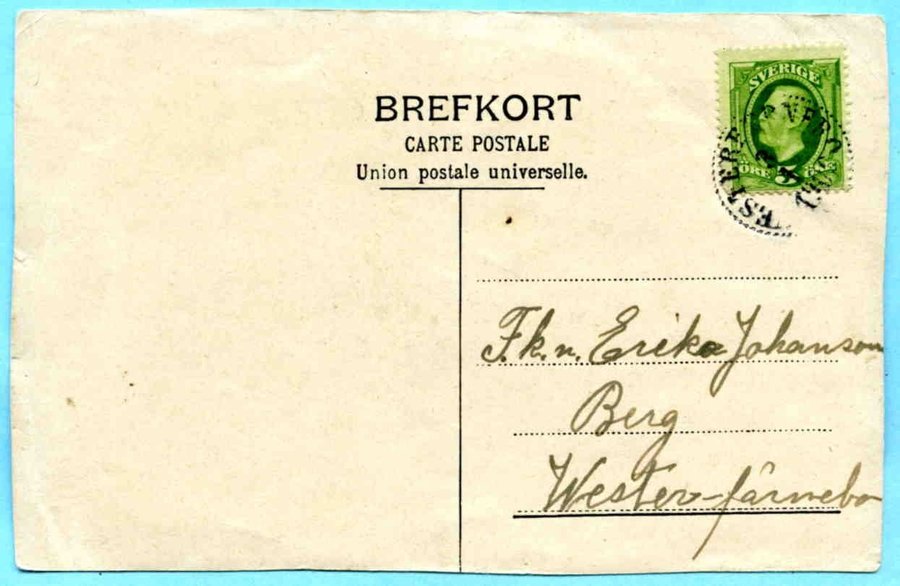 BREFKORT
CARTE POSTALE
Union postale universelle.
SVERIGE
ÖRE 5 ÖRE
Fk.n. Erika Johanson
Berg
Wester-färnebo